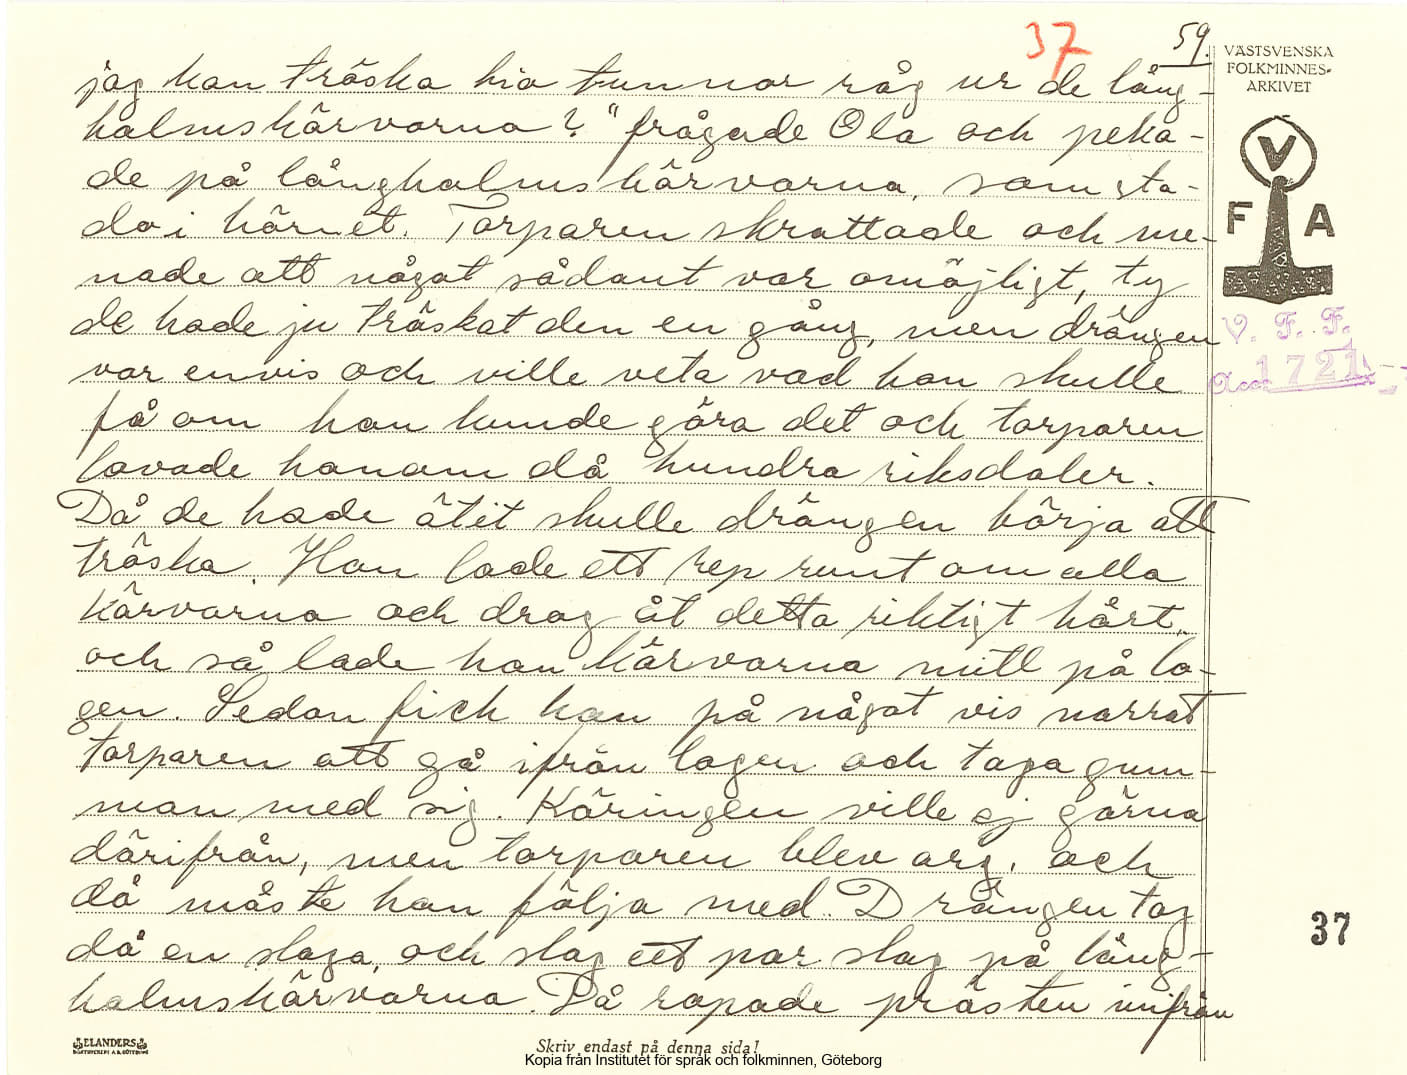 37
59.
VÄSTSVENSKA
FOLKMINNES-
ARKIVET
jag kan tröska tio tunnor råg ur de lång-
halmskärvarna?" frågade Ola och peka-
de på långhalmskärvarna, som sta-
do i hörnet. Torparen skrattade och me-
nade att något sådant var omöjligt, ty
de hade ju tröskat den en gång, men drängen
var envis och ville veta vad han skulle
få om han kunde göra det och torparen
lovade honom då hundra riksdaler.
Då de hade ätit skulle drängen börja att
tröska. Han lade ett rep runt om alla
kärvarna och drog åt detta riktigt hårt,
och så lade han kärvarna mitt på lo-
gen. Sedan fick han på något vis narrat
torparen att gå ifrån logen och taga gum-
man med sig. Käringen ville ej gärna
därifrån, men torparen blev arg, och
då måste hon följa med. Drängen tog
då en slaga, och slog ett par slag på lång-
halmskärvarna. Då ropade prästen inifrån
V
F A
V. F. F.
1721
37
ELANDERS
Skriv endast på denna sida!
Kopia från Institutet för språk och folkminnen, Göteborg